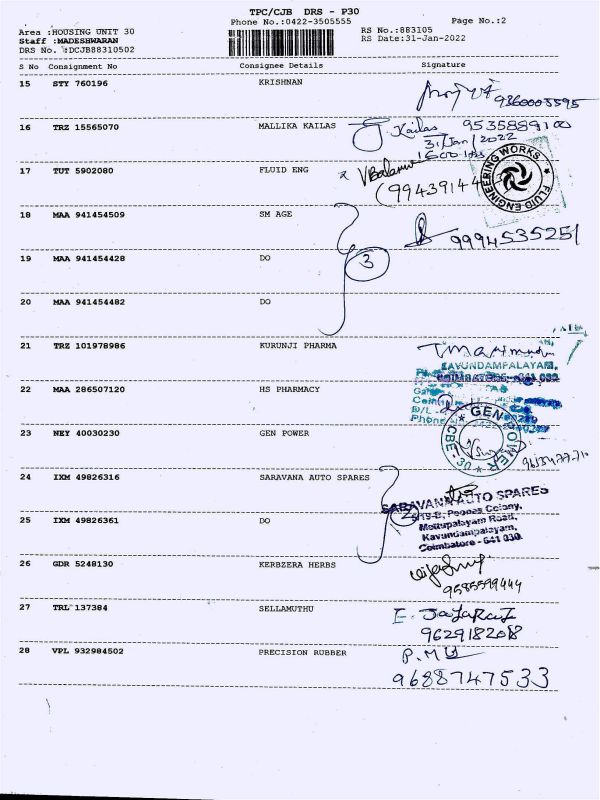 TPC/CJB DRS - P30
Phone No.:0422-3505555
Page No.:2
Area :HOUSING UNIT 30
Staff :MADESHWARAN
DRS No. :DCJB88310502
RS No.:883105
RS Date:31-Jan-2022
S No Consignment No Consignee Details Signature
15 STY 760196 KRISHNAN
9360005595
16 TRZ 15565070 MALLIKA KAILAS Kailas 9535889100
31/Jan/2022
1600 Hrs
17 TUT 5902080 FLUID ENG
FLUID ENGINEERING WORKS
18 MAA 941454509 SM AGE 9994535251
19 MAA 941454428 DO 3
20 MAA 941454482 DO
21 TRZ 101978986 KURUNJI PHARMA
KAVUNDAMPALAYAM,
22 MAA 286507120 HS PHARMACY
23 NEY 40030230 GEN POWER
GEN POWER
CBE-30
24 IXM 49826316 SARAVANA AUTO SPARES
SARAVANA AUTO SPARES
25 IXM 49826361 DO
Mettupalayam Road,
Kavundampalayam,
Coimbatore - 641 030.
26 GDR 5248130 KERBZERA HERBS
9585599444
27 TRL 137384 SELLAMUTHU E. JayaRaj
9629182088
28 VPL 932984502 PRECISION RUBBER P.M
9688747533